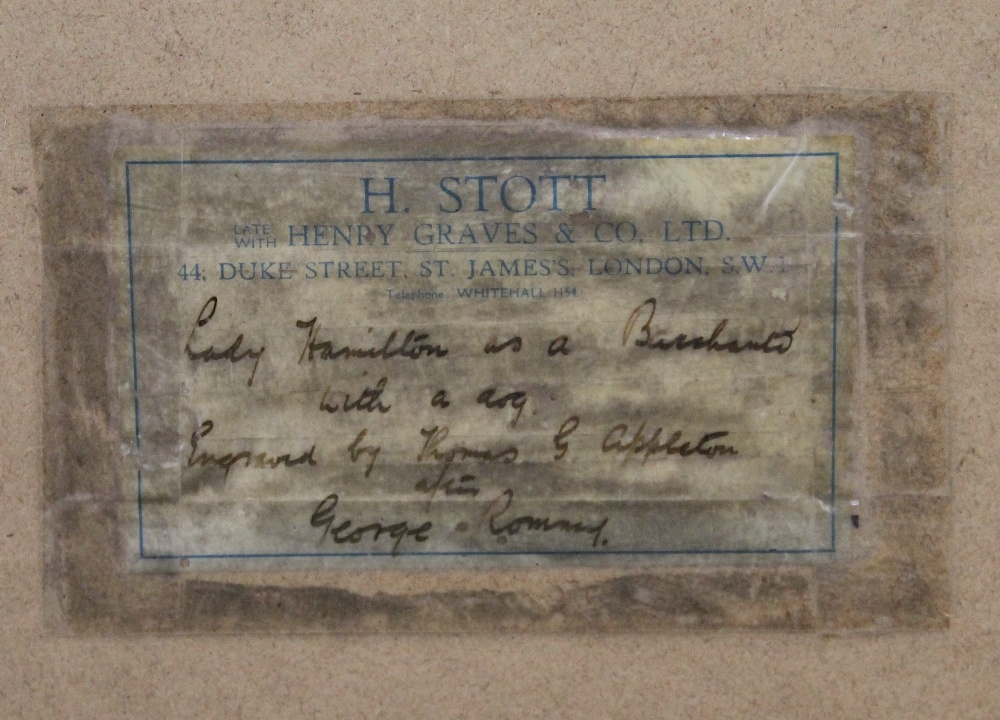 H. STOTT
LATE WITH HENRY GRAVES & CO. LTD.
44, DUKE STREET, ST. JAMES'S, LONDON, S.W.1
Telephone WHITEHALL 1154
Lady Hamilton as a Bacchante
with a dog.
Engraved by Thomas G. Appleton
after
George Romney.